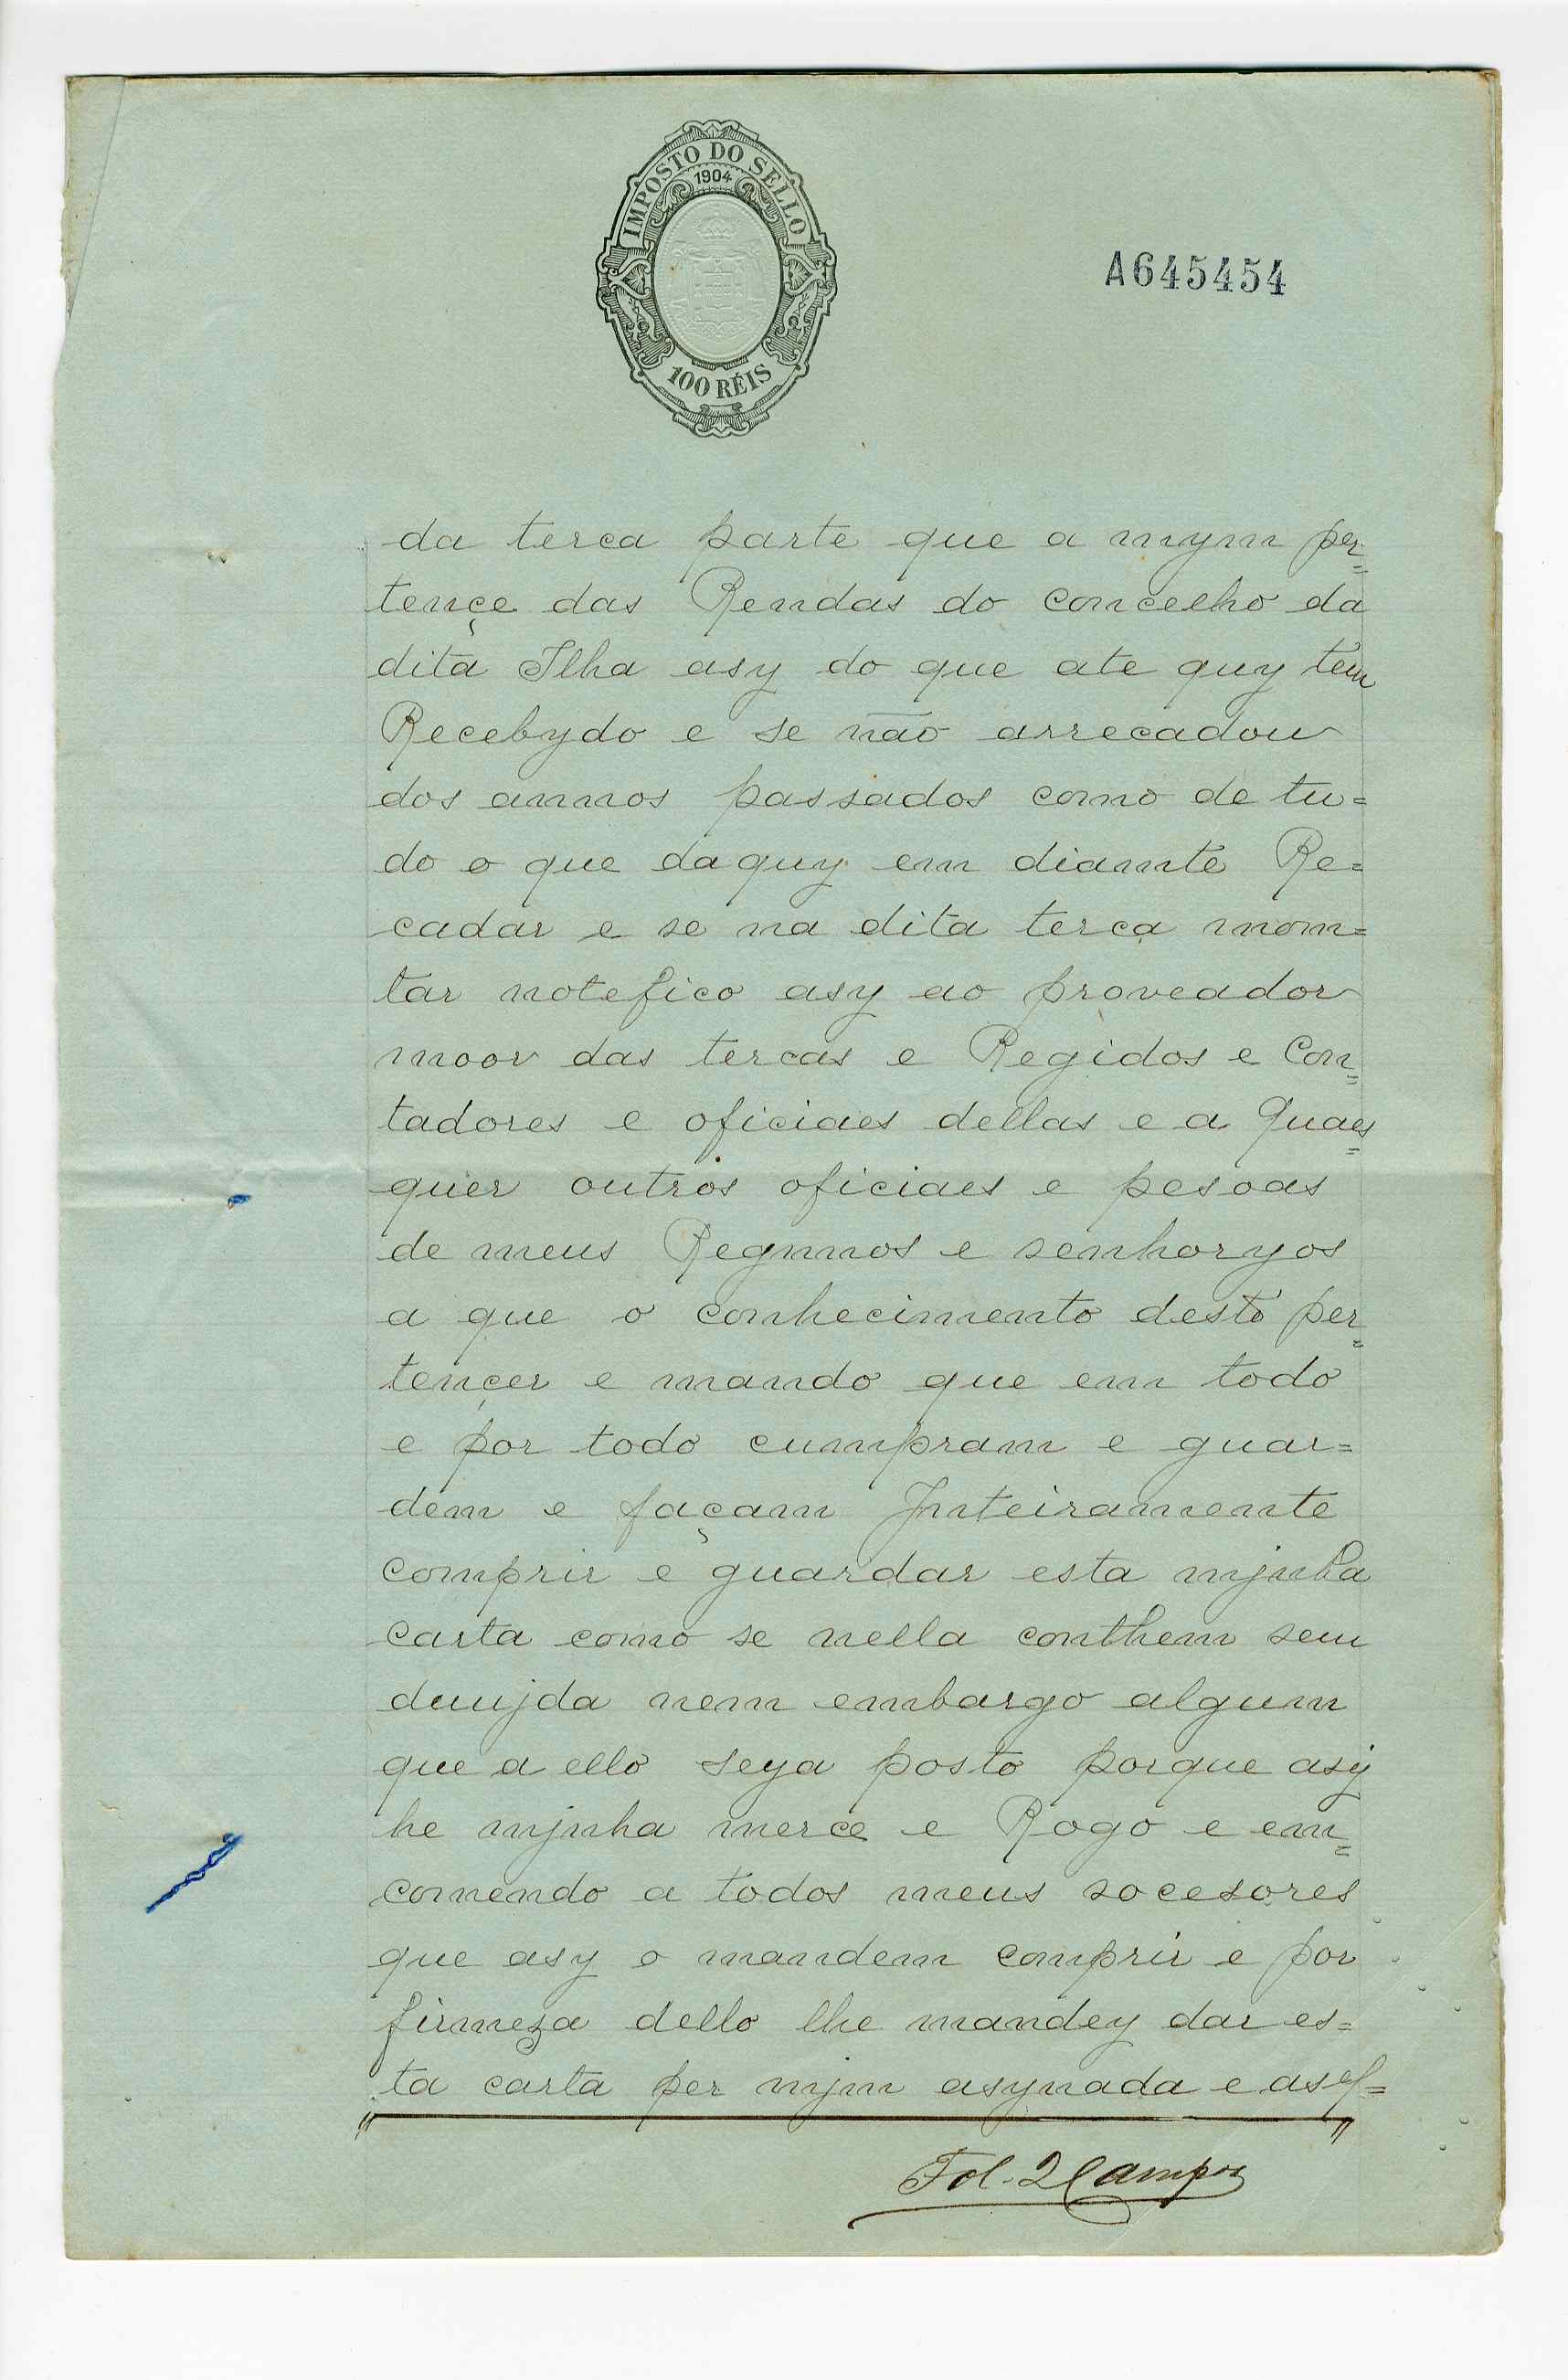 IMPOSTO DO SELLO
1904
100 RÉIS
A645454
da terca parte que a mym per=
tençe das Rendas do concelho da
dita Ilha asy do que ate quy tem
Recebydo e se não arrecadou
dos annos passados como de tu=
do o que daquy em diante Re=
cadar e se na dita terca mom=
tar notefico asy ao proveador
moor das tercas e Regidos e Con=
tadores e oficiaes dellas e a Quaes=
quer outros oficiaes e pesoas
de meus Regnnos e senhoryos
a que o conhecimento desto per=
tençer e mando que em todo
e por todo cumpram e guar=
dem e façam Jnteiramente
comprir e guardar esta mjnha
carta como se nella conthem sem
duujda nem embargo algum
que a ello seya posto porque asy
he mjnha merce e Rogo e em=
comendo a todos meus socesores
que asy o mandem comprir e por
firmeza dello lhe mandey dar es=
ta carta per mjm asynada e asel=
Fol. 2 Campos